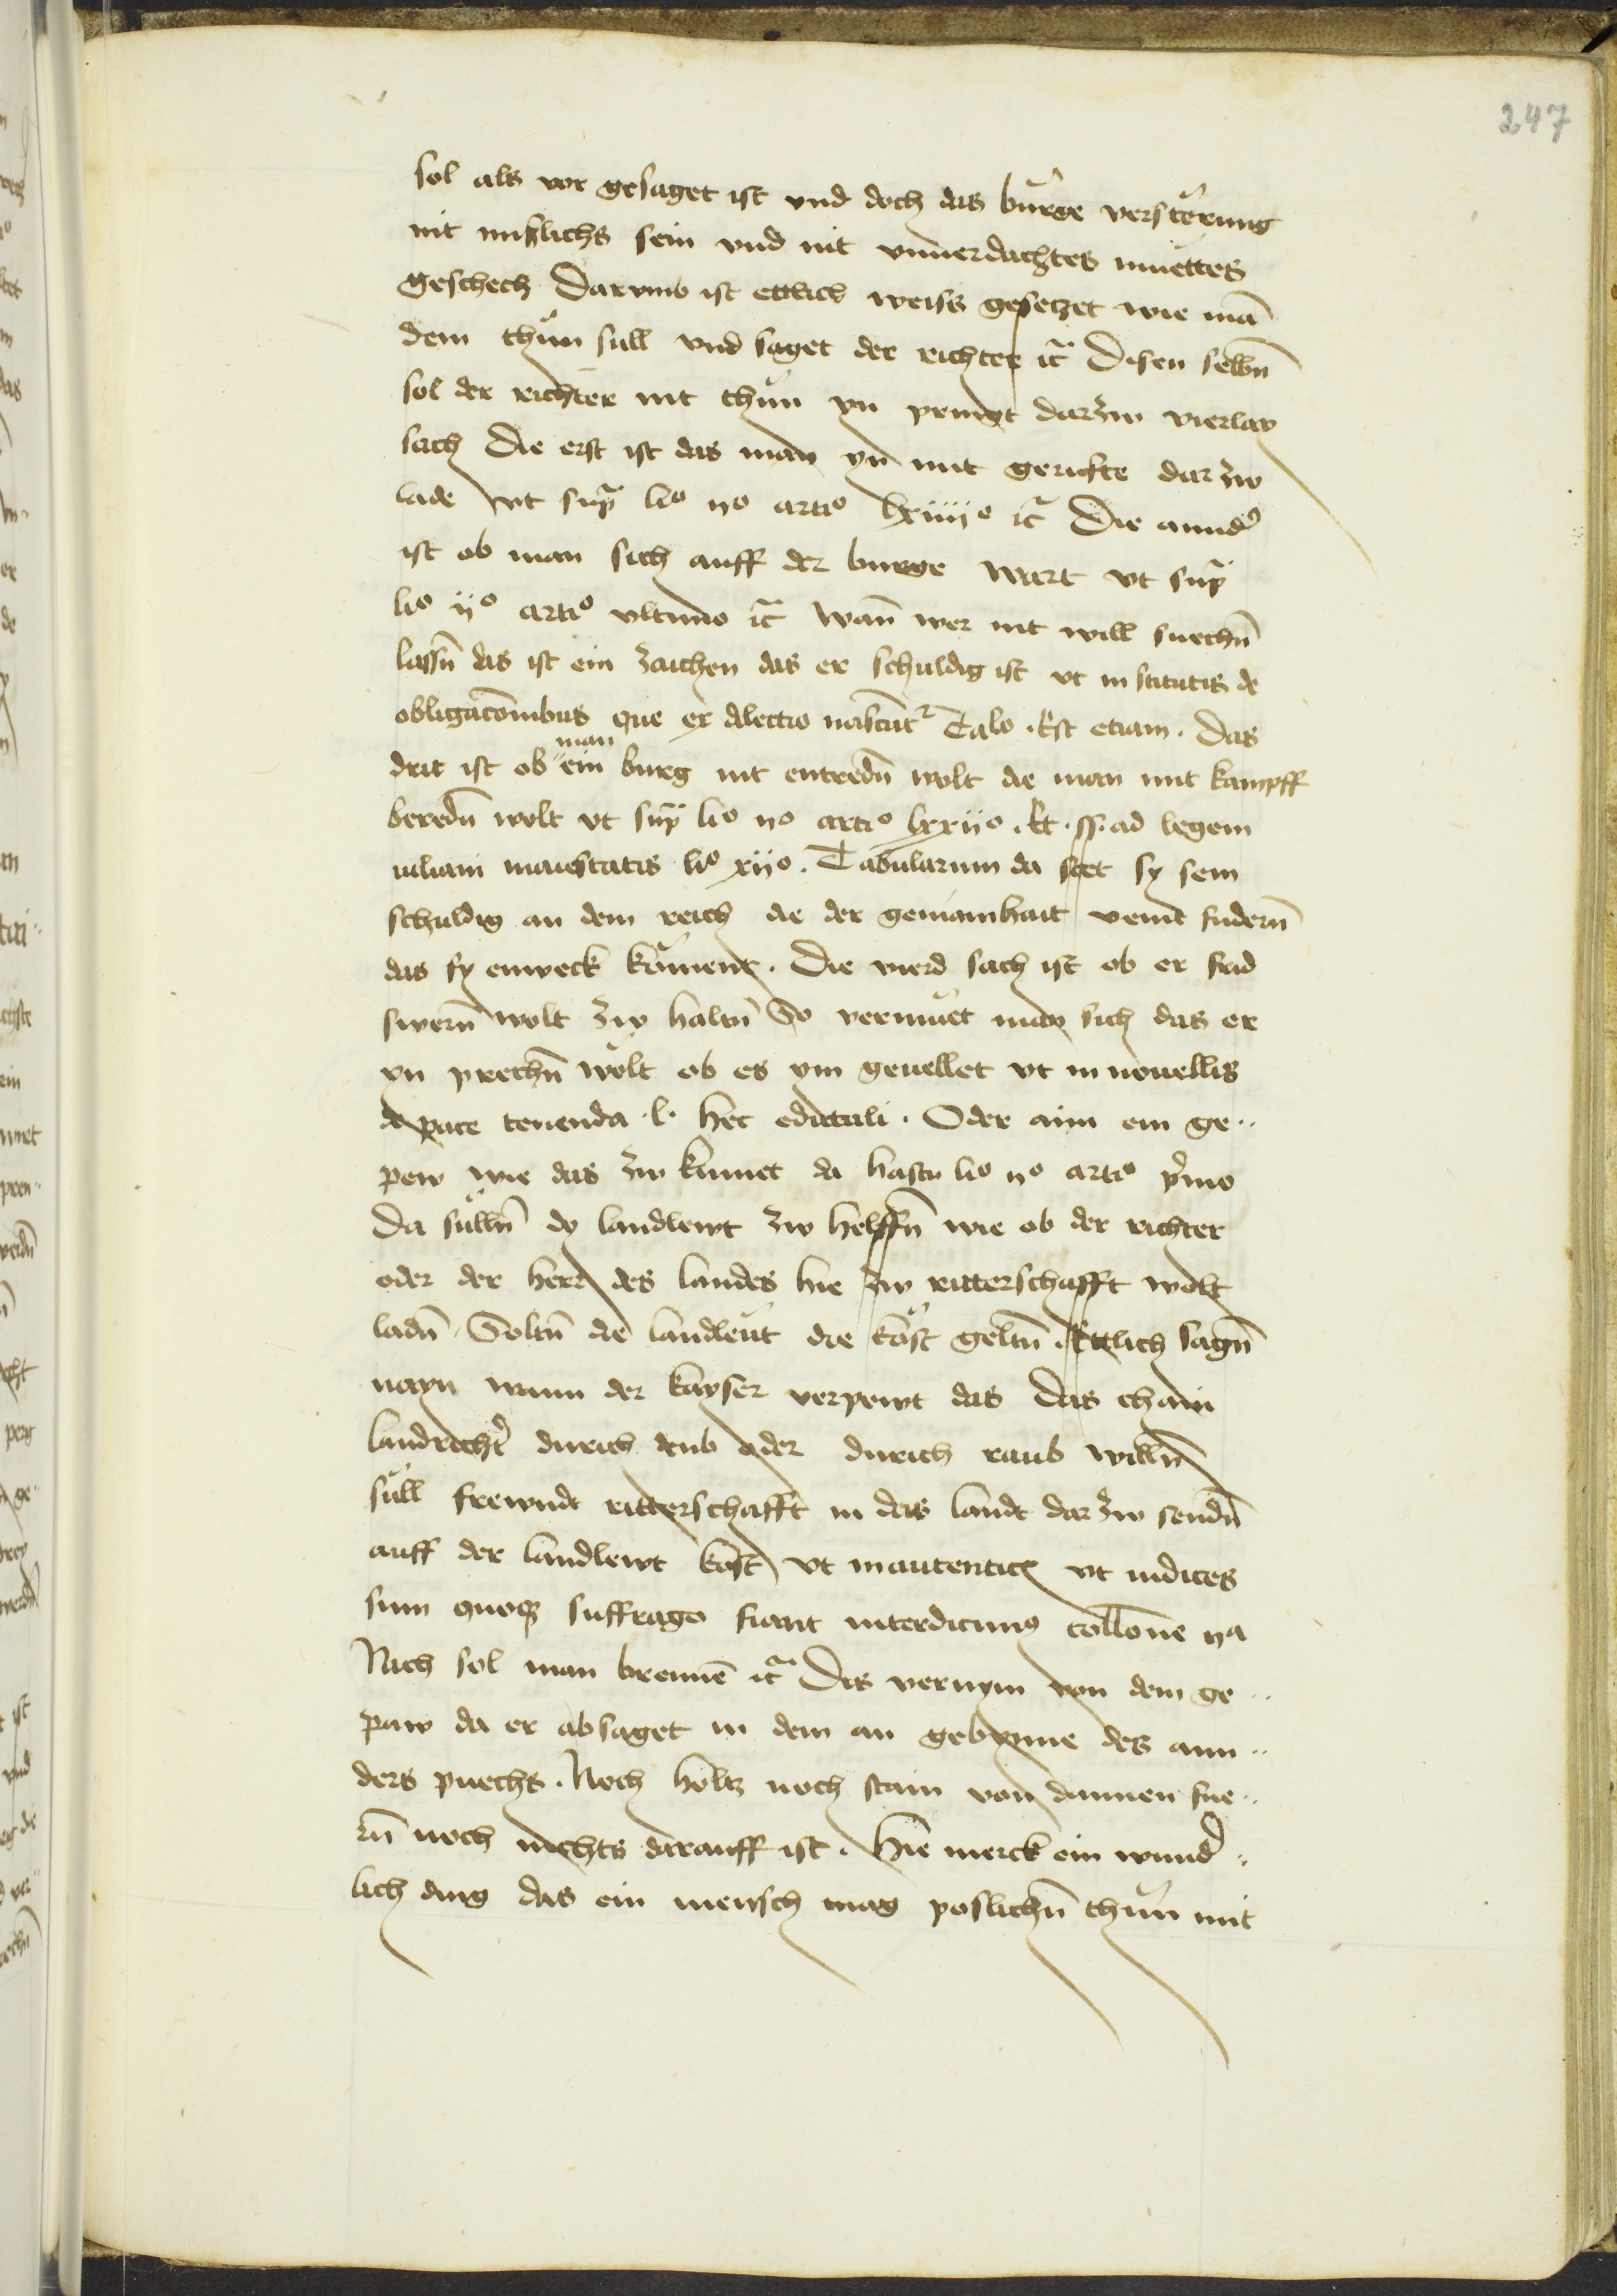 247
sol als vor gesaget ist vnd doch das bürge versterung
nit mißlichs sein vnd nit vnuerdachtes muettes
Geschech Darvmb ist ettlich weiss gesetzet wie mā
dem thün sull vnd saget der richter ꝛc̄ Disen selbn̄
sol der richter nit thun yn pringt darzw vierlay
sach Die erst ist das man yn mit gerufte dar zw
lade vt sup̄ li° ij° arti° lxiiij° ꝛc̄ Die annd̓
ist ob man sich auff der burge wart vt sup̄
li° ij° arti° vltimo ꝛc̄ wan̄ wer nit will suechn̄
lassn̄ das ist ein zaichen das er schuldig ist vt in stitutis de
obligacōnibus que ex delicto nascūt² Talo . Est etiam . Das
drit ist ob man ein burg nit entredn̄ wolt die man mit kampff
beredn̄ wolt vt sup̄ li° ij° arti° lxxij° . Et . ff . ad legem
iuliam maiestatis li° xij° . Tabularum da stet sy sein
schuldig an dem reich die der gemainhait veint fudern̄
das sy enweck köment . Die vierd sach ist ob er frid
swern̄ wolt zw haltn̄ So vermüet man sich das er
yn prechn̄ wölt ob es ym geuellet vt in nouellis
de pace tenenda . l . hec edictali . Oder aim ein ge..
pew wie das zw kumet da hastu li° ij° arti° p̓mo
Da sülln̄ dy landlewt zw helffn̄ wie ob der richter
oder der herr des landes hie zw ritterschafft wolt
ladn̄ Soltn̄ die landleut die kost geltn̄ . Ettlich sagn̄
nayn wann der kayser verpewt das Das chain
landrecht̓ durich deub oder durich raub willn̄
süll frewndt ritterschafft in das landt dar zw sendn̄
auff der landlewt kost vt in autenticꝭ vt iudices
sine quoqꝫ suffrago fiant interdicimꝰ colloͤne ija
Nach sol man brennē ꝛc̄ Dis vernym von dem ge..
paw da er absaget in dem an gebynne des ann..
ders puechs . Noch holtz noch stain von dannen fue..
rn̄ noch nichts darauff ist . Hie merck ein wund̓..
lich ding das ein mensch mag poslichn̄ thun mit